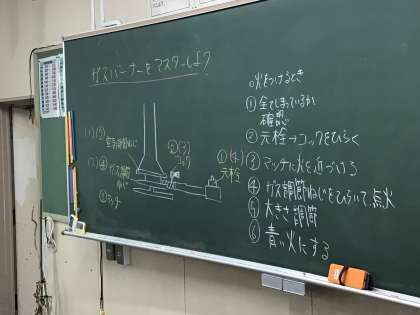 ガスバーナーをマスターしよう
(1)(5)
空気調節ねじ
(2)(4)
ガス調節
ねじ
②(3)
コック
①(4)
元栓
○火をつけるとき
①全てしまっているか
確認
②元栓→コックをひらく
③マッチに火を近づける
④ガス調節ねじをひらいて点火
⑤大きさ調節
⑥青い火にする